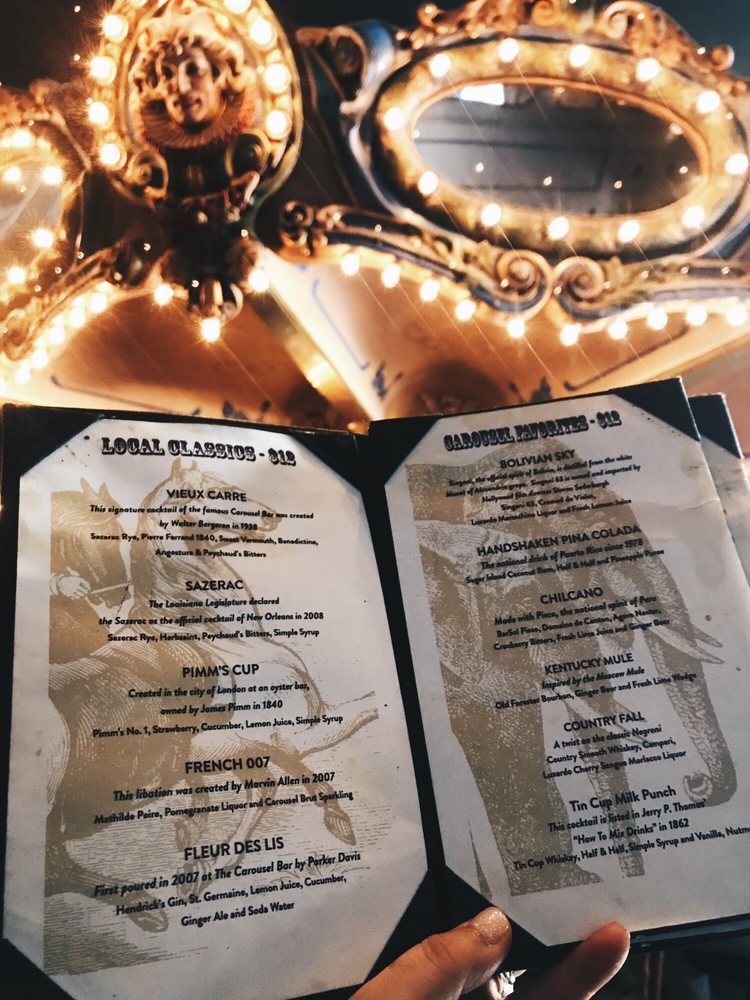 LOCAL CLASSICS - $12
VIEUX CARRE
This signature cocktail of the famous Carousel Bar was created
by Walter Bergeron in 1938
Sazerac Rye, Pierre Ferrand 1840, Sweet Vermouth, Benedictine,
Angostura & Peychaud's Bitters
SAZERAC
The Louisiana Legislature declared
the Sazerac as the official cocktail of New Orleans in 2008
Sazerac Rye, Herbsaint, Peychaud's Bitters, Simple Syrup
PIMM'S CUP
Created in the city of London at an oyster bar,
owned by James Pimm in 1840
Pimm's No. 1, Strawberry, Cucumber, Lemon Juice, Simple Syrup
FRENCH 007
This libation was created by Marvin Allen in 2007
Mathilde Poire, Pomegranate Liquor and Carousel Brut Sparkling
FLEUR DES LIS
First poured in 2007 at The Carousel Bar by Parker Davis
Hendrick's Gin, St. Germaine, Lemon Juice, Cucumber,
Ginger Ale and Soda Water
CAROUSEL FAVORITES - $12
BOLIVIAN SKY
Singani, the official spirit of Bolivia, is distilled from the white
Muscat of Alexandria grape. Singani 63 is owned and imported by
Hollywood film director Steven Soderbergh
Singani 63, Crème de Violet,
Luxardo Maraschino Liquor and Fresh Lemon Juice
HANDSHAKEN PINA COLADA
The national drink of Puerto Rico since 1978
Sugar Island Coconut Rum, Half & Half and Pineapple Puree
CHILCANO
Made with Pisco, the national spirit of Peru
BarSol Pisco, Domaine de Canton, Agave Nectar,
Cranberry Bitters, Fresh Lime Juice and Ginger Beer
KENTUCKY MULE
Inspired by the Moscow Mule
Old Forester Bourbon, Ginger Beer and Fresh Lime Wedge
COUNTRY FALL
A twist on the classic Negroni
Country Smooth Whiskey, Campari,
Luxardo Cherry Sangue Morlacco Liquor
Tin Cup Milk Punch
This cocktail is listed in Jerry P. Thomas'
"How To Mix Drinks" in 1862
Tin Cup Whiskey, Half & Half, Simple Syrup and Vanilla,